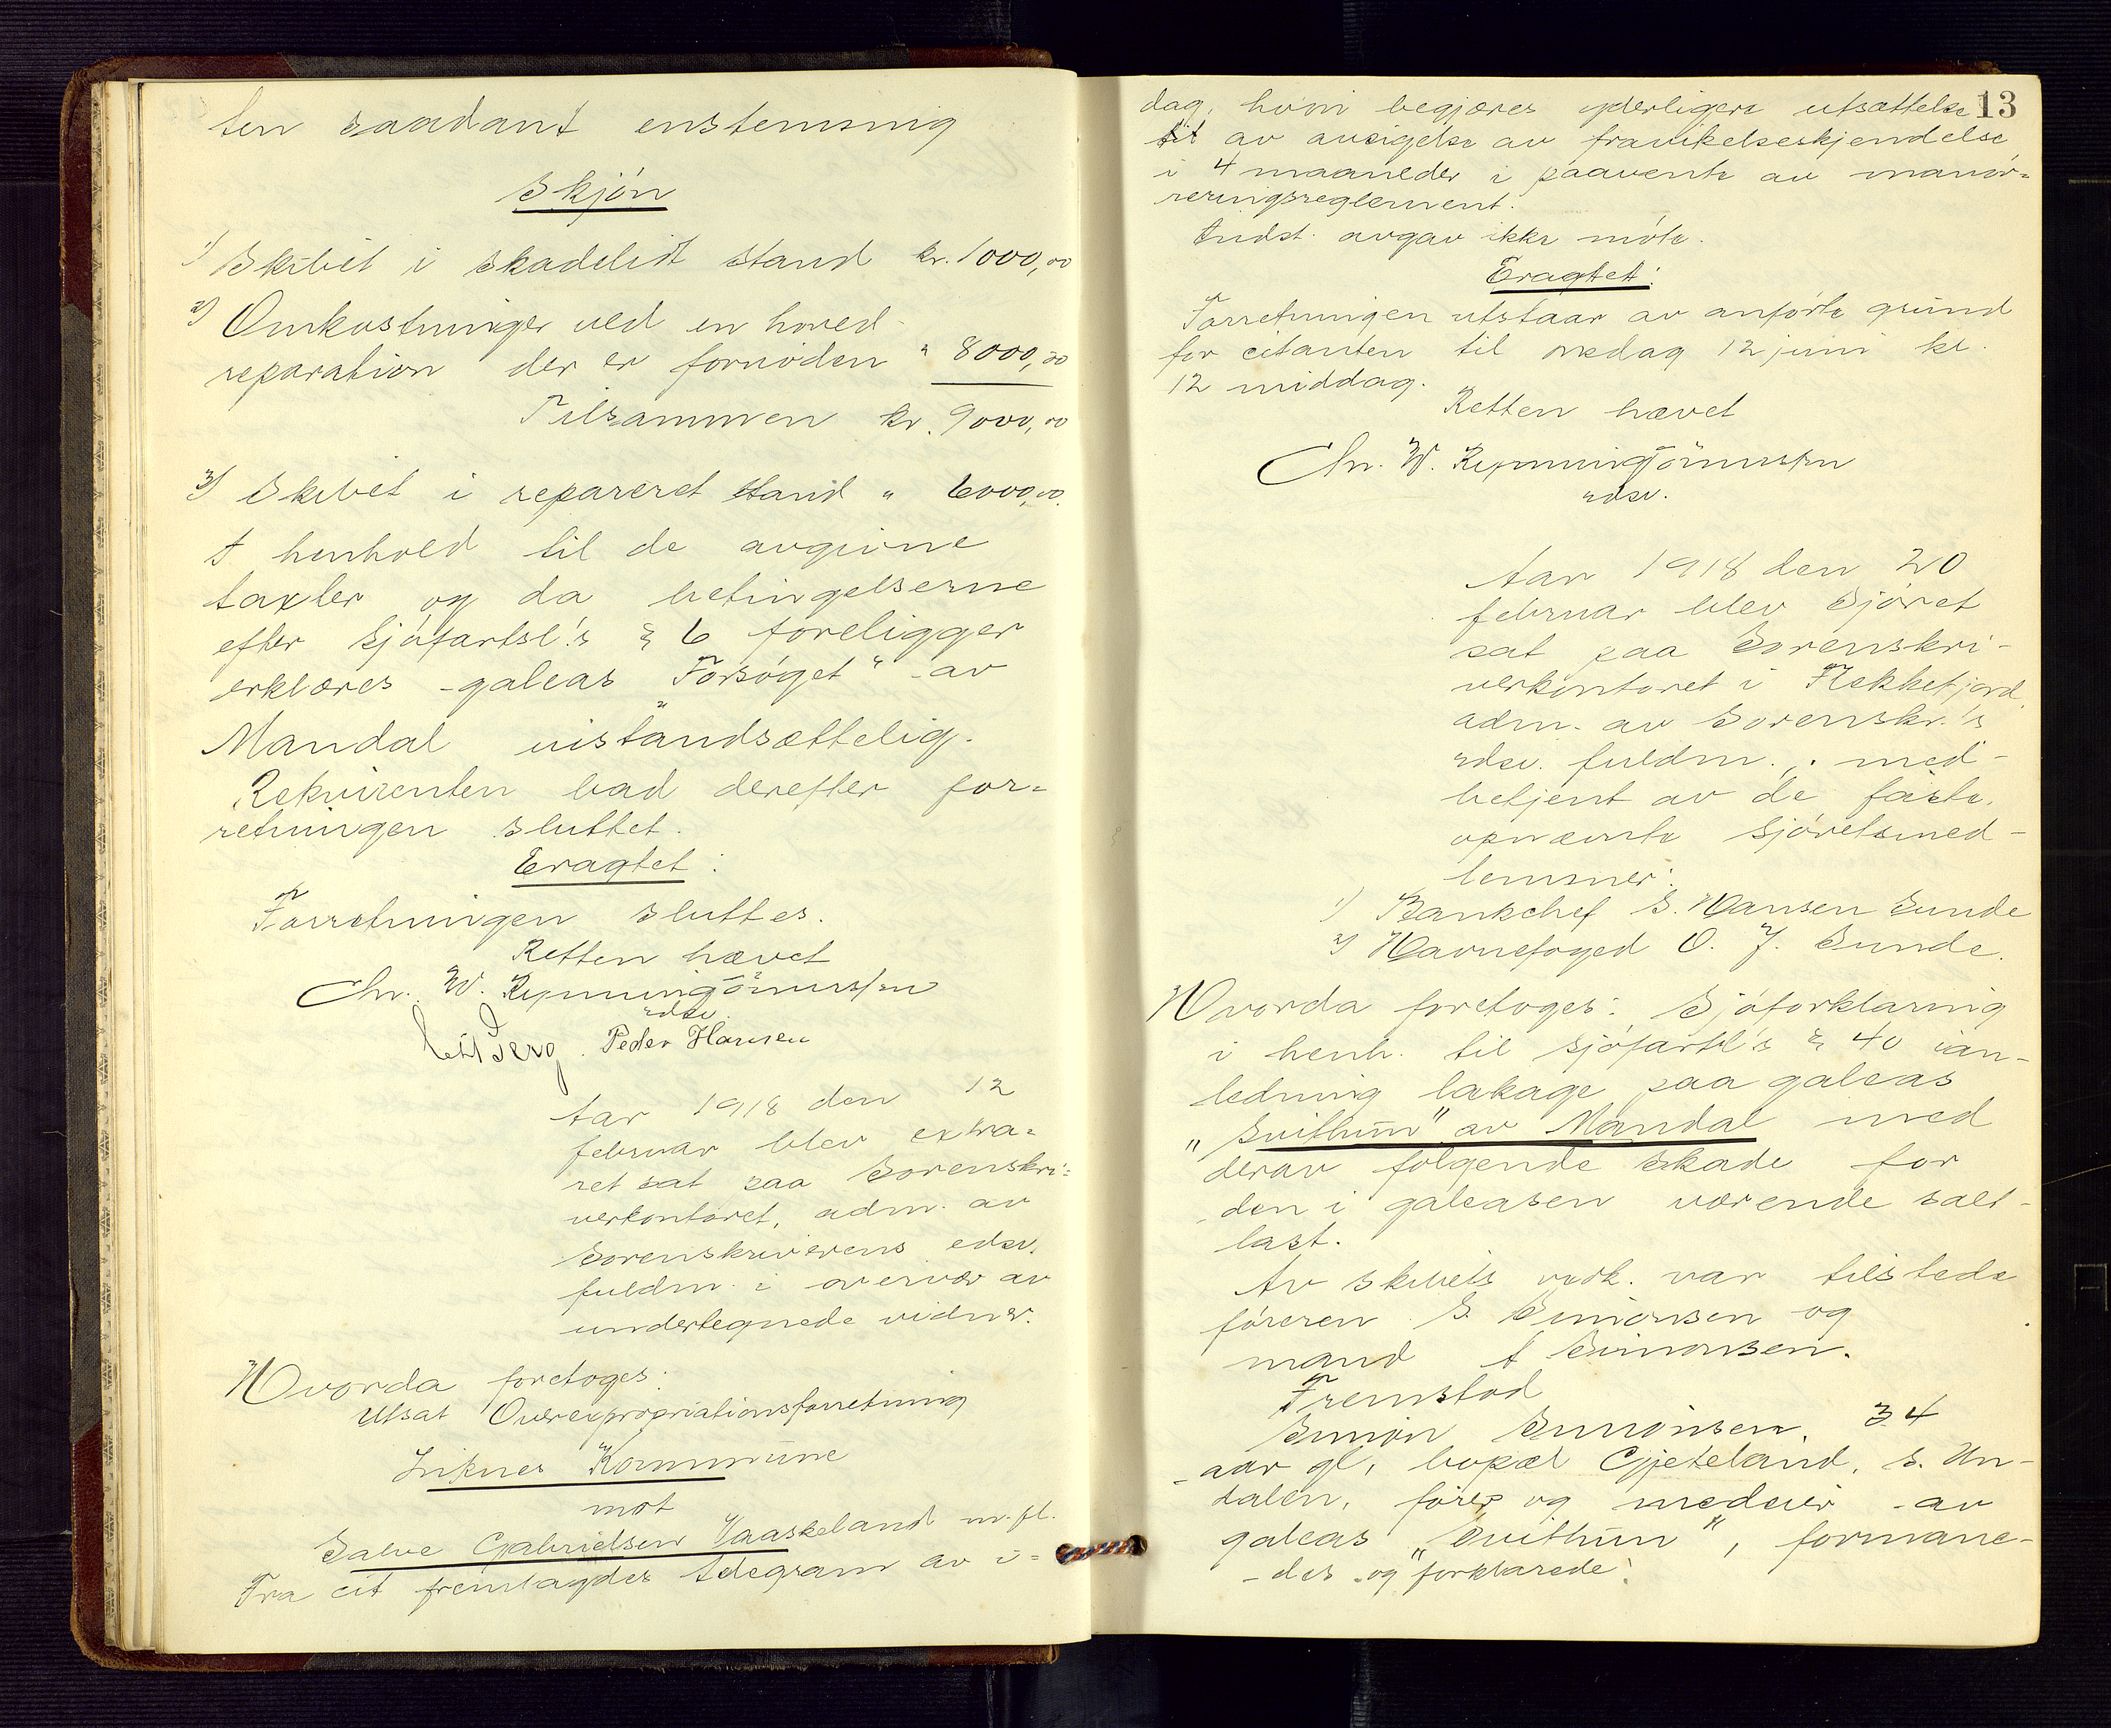 ten saadant enstemmig
Skjøn
1) Skibet i skadelidt stand kr. 1000,00
2) Omkostninger ved en hoved-
reparation der er fornöden " 8000,00
Tilsammen kr. 9000,00
3) Skibet i repareret stand " 6000,00.
I henhold til de avgivne
taxter og da betingelserne
efter Sjöfartsl.'s § 6 foreligger
erklæres galeas "Forsøget" av
Mandal uistandsættelig.
Rekvirenten bad derefter for-
retningen sluttet.
Eragtet:
Forretningen sluttes.
Retten hævet
Chr. W. Rynning Tönnesen
edsv.
Berg. Peder Hansen
Aar 1918 den 12
februar blev extra-
ret sat paa Sorenskri-
verkontoret, adm. av
Sorenskriverens edsv.
fuldm. i overvær av
undertegnede vidner.
Hvorda foretoges:
Utsat Overexpropriationsforretning
Liknes Kommune
mot
Salve Gabrielsen Vaaskeland m. fl.
Fra cit fremlagdes telegram av i-
13
dag, hvori begjæres yderligere utsættelse
til av avsigelse av fravikelseskjendelse
i 4 maaneder i paavente av manöv-
reringsreglement.
Indst. avgav ikke möte.
Eragtet:
Forretningen utstaar av anförte grund
for citanten til onsdag 12 juni kl.
12 middag.
Retten hævet
Chr. W. Rynning Tönnesen
edsv.
Aar 1918 den 20
februar blev Sjöret
sat paa Sorenskri-
verkontoret i Flekkefjord,
adm. av Sorenskr.'s
edsv. fuldm., med-
betjent av de faste,
opnævnte sjöretsmed-
lemmer:
1) Bankchef S. Hansen Sunde
2) Havnefoged O. J. Sunde.
Hvorda foretoges: Sjöforklaring
i henh. til sjöfartsl's § 40 i an-
ledning lækage paa galeas
"Svithun" av Mandal med
derav fölgende skade for
den i galeasen værende salt-
last.
Av skibets mdsk. var tilstede
föreren S. Simonsen og
mand A Simonsen.
Fremstod
Simon Simonsen, 34
aar gl, bopæl Gjeteland, S. Un-
dalen, förer og medeier av
galeas "Svithun", formane-
des og forklarede: